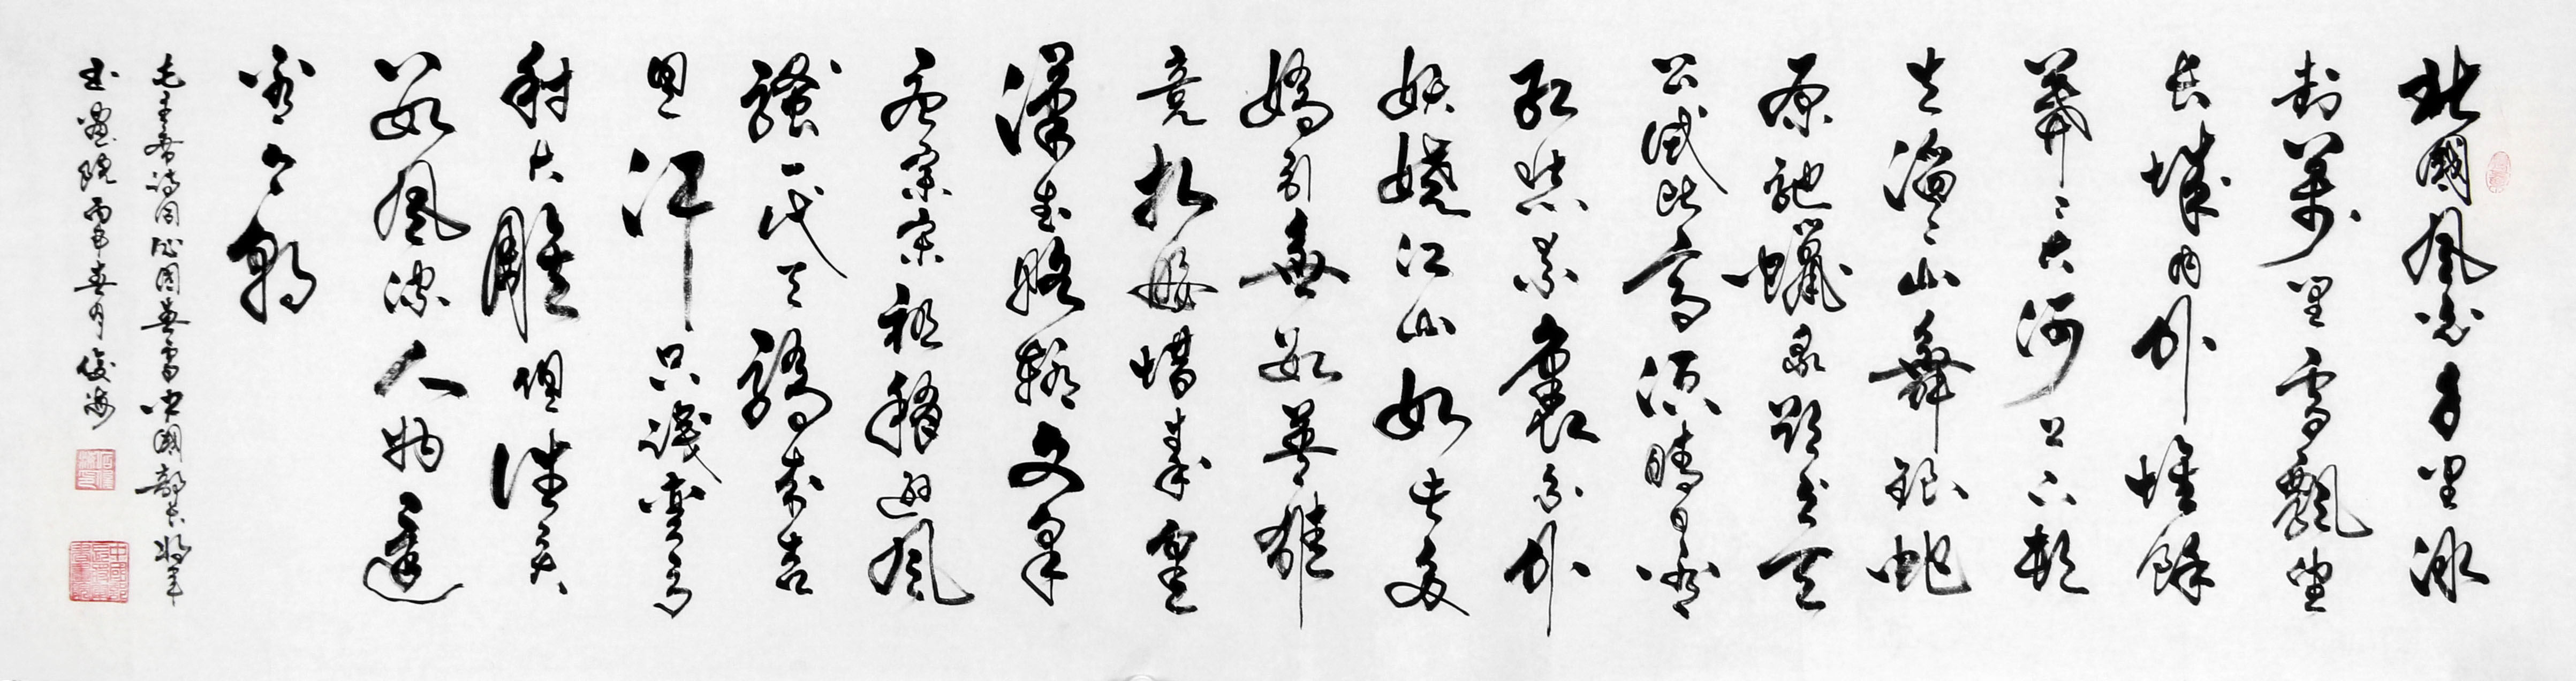 北國風光千里冰
封萬里雪飄望
長城內外惟餘
莽々大河上下頓
失滔々山舞銀蛇
原馳蠟象欲與天
公試比高須晴日看
紅裝素裹分外
妖嬈江山如此多
嬌引無數英雄
競折腰惜秦皇
漢武略輸文采
唐宗宋祖稍遜風
騷一代天驕成吉
思汗只識彎弓
射大雕俱往矣
數風流人物還
看今朝
毛主席詩詞沁園春雪中國部長將軍
書畫院丙申春月俊海